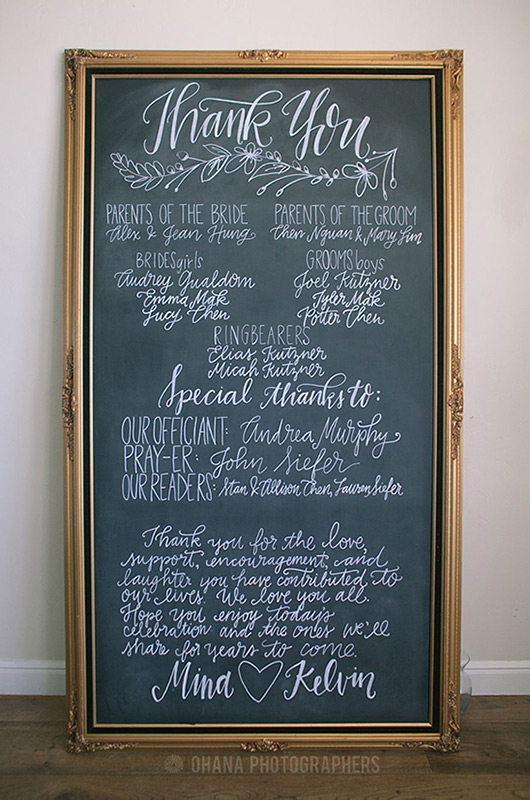 Thank You
PARENTS OF THE BRIDE
Alex & Jean Hung
PARENTS OF THE GROOM
Chen Nguan & Mary Lim
BRIDESgirls
Audrey Gualdoni
Emma Mak
Lucy Chen
GROOMSboys
Joel Kutzner
Tyler Mak
Potter Chen
RINGBEARERS
Elias Kutzner
Micah Kutzner
Special thanks to:
OUR OFFICIANT: Andrea Murphy
PRAY-ER: John Siefer
OUR READERS: Stan & Allison Chen, Lauren Siefer
Thank you for the love,
support, encouragement, and
laughter you have contributed to
our lives. We love you all.
Hope you enjoy today's
celebration and the ones we'll
share for years to come.
Mina Kelvin
OHANA PHOTOGRAPHERS